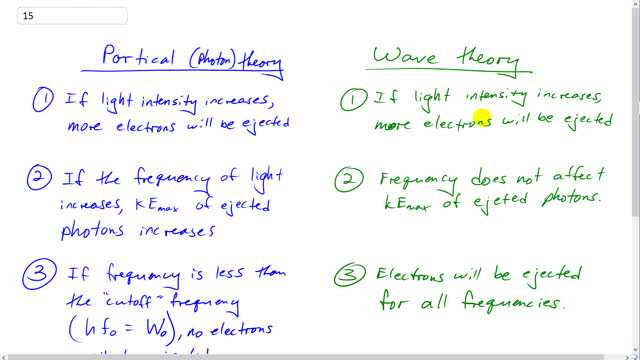 15
Portical (photon) theory
① If light intensity increases,
more electrons will be ejected
② If the frequency of light
increases, KEmax of ejected
photons increases
③ If frequency is less than
the "cutoff" frequency
(hf₀ = W₀), no electrons
Wave theory
① If light intensity increases,
more electrons will be ejected
② Frequency does not affect
KEmax of ejeted photons.
③ Electrons will be ejected
for all frequencies.